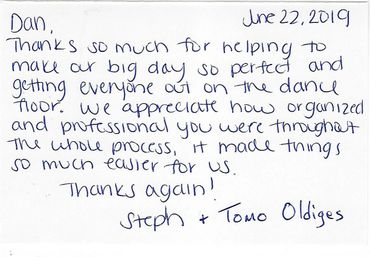 June 22, 2019
Dan,
Thanks so much for helping to
make our big day so perfect and
getting everyone out on the dance
floor. We appreciate how organized
and professional you were throughout
the whole process, it made things
so much easier for us.
Thanks again!
Steph + Tomo Oldiges